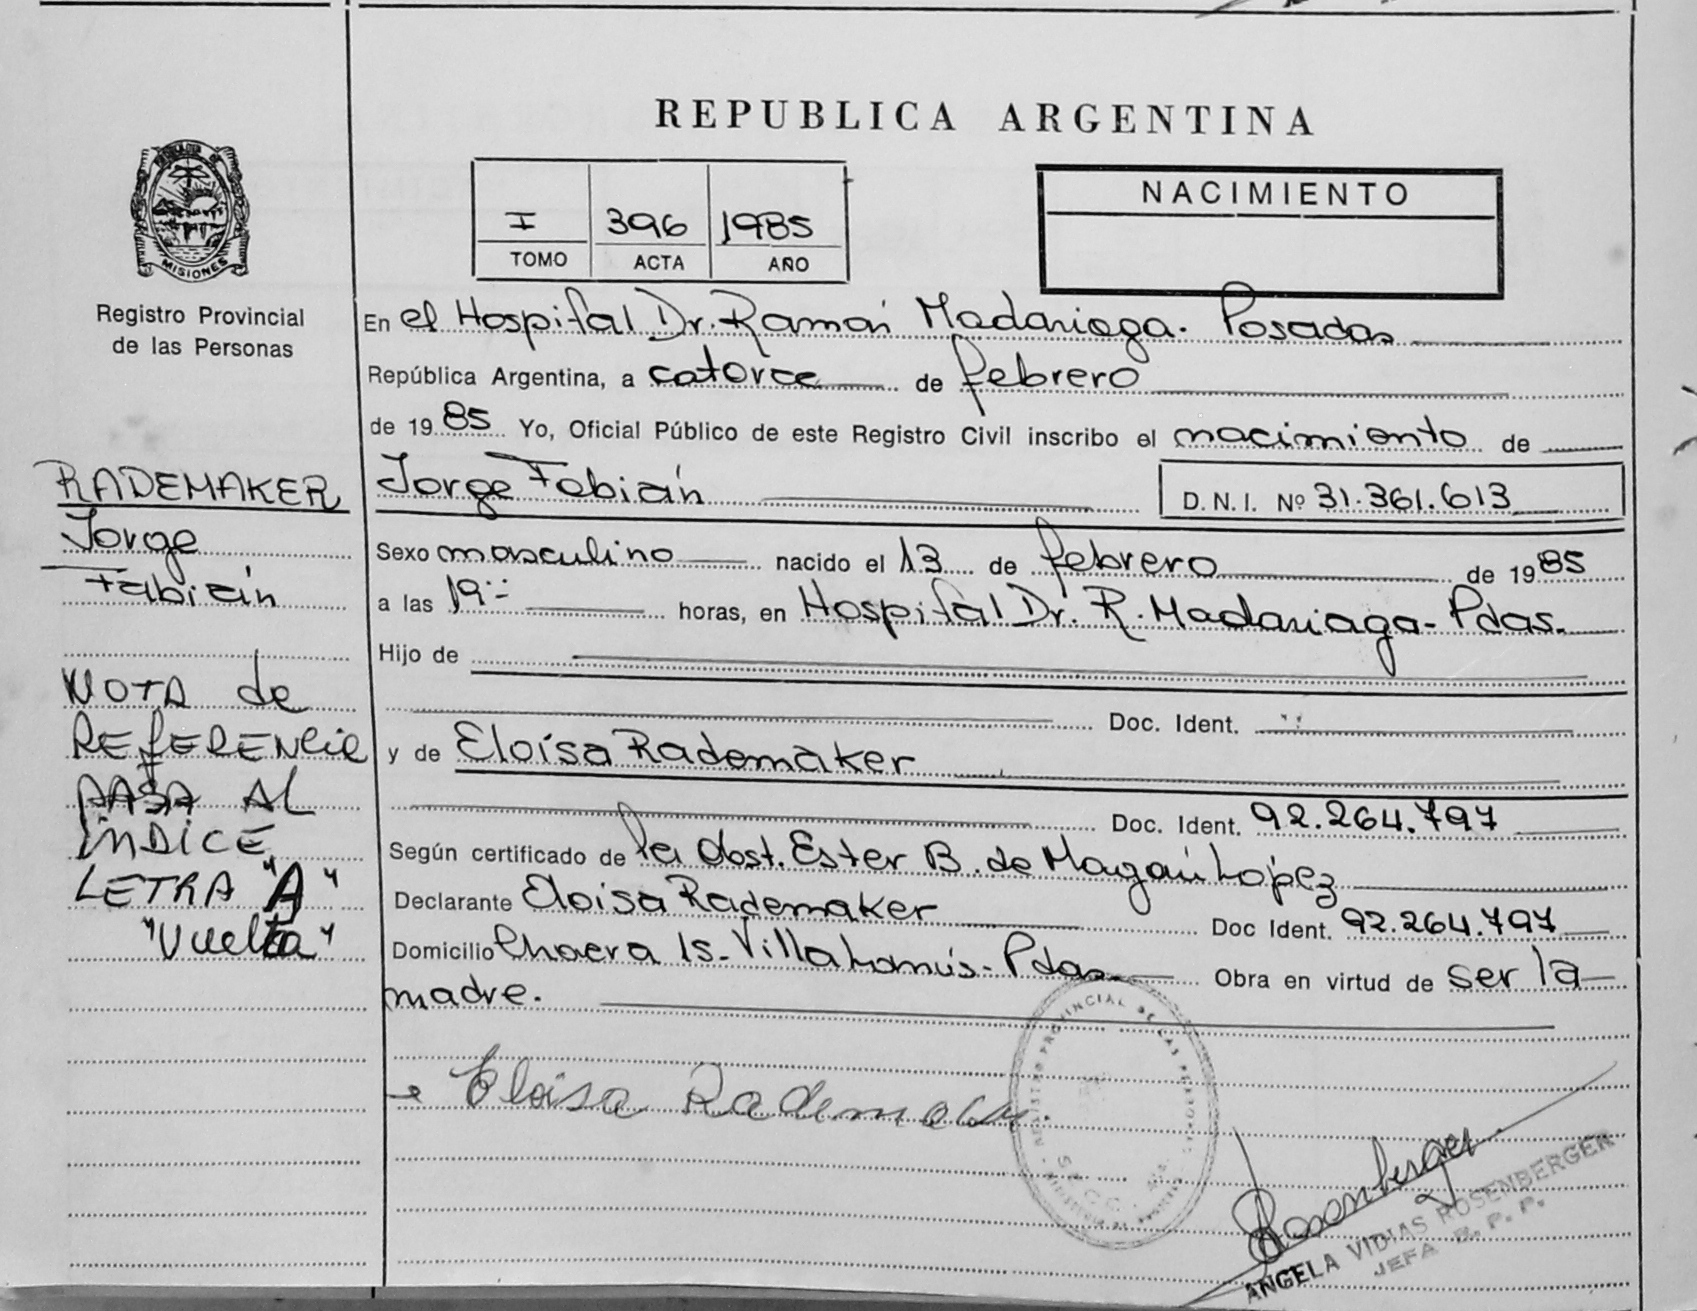 REPUBLICA ARGENTINA
NACIMIENTO
I 396 1985
TOMO ACTA AÑO
MISIONES
Registro Provincial
de las Personas
En el Hospital Dr. Ramón Madariaga. Posadas
República Argentina, a catorce de febrero
de 1985 Yo, Oficial Público de este Registro Civil inscribo el nacimiento de
RADEMAKER
Jorge
Fabián
Jorge Fabián
D.N.I. Nº 31.361.613
Sexo masculino nacido el 13 de febrero de 1985
a las 19 horas, en Hospital Dr. R. Madariaga - Pdas.
Hijo de
Doc. Ident.
y de Eloísa Rademaker
Doc. Ident. 92.264.797
Según certificado de la Obst. Ester B. de López
Declarante Eloisa Rademaker Doc Ident. 92.264.797
Domicilio Chacra 1s - Villa Lanús - Pdas Obra en virtud de ser la
madre.
NOTA de
REfERENCIA
PASA AL
ÍNDICE
LETRA "A"
"Vuelta"
Eloisa Rademaker
REGISTRO PROVINCIAL DE LAS PERSONAS
Rosenberger
ANGELA VIDIAS ROSENBERGER
JEFA R. P. P.